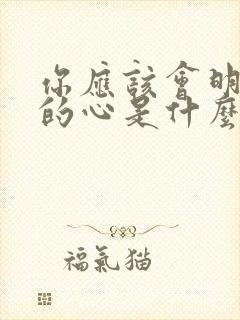 你應該會明
的心是什麼
福氣猫